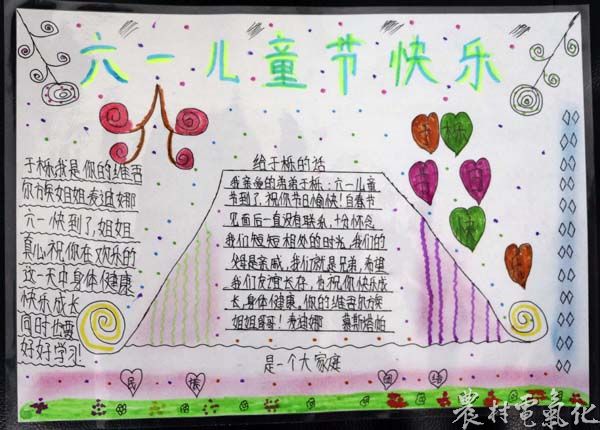 六一儿童节快乐
于栎我是你的维吾
尔族姐姐麦迪娜
六一快到了,姐姐
真心祝你在欢乐的
这一天中身体健康
快乐成长
同时也要
好好学习!
给于栎的话
我亲爱的弟弟于栎:六一儿童
节到了,祝你节日愉快!自春节
见面后一直没有联系,十分怀念
我们短短相处的时光,我们的
父母是亲戚,我们就是兄弟,希望
我们友谊长存,祝你快乐成
长,身体健康,你的维吾尔族
姐姐哥哥!麦迪娜 慕斯塔帕
是一个大家庭
民 族 团 结
農村電氣化